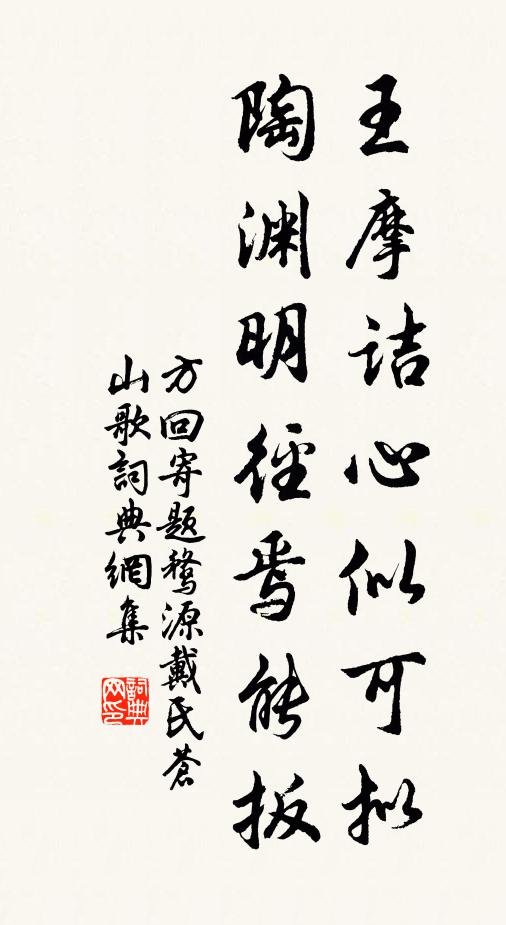 王摩詰心似可拟
陶渊明径焉能扳
方回寄题婺源戴氏苍
山歌詞典網集
詞典网印